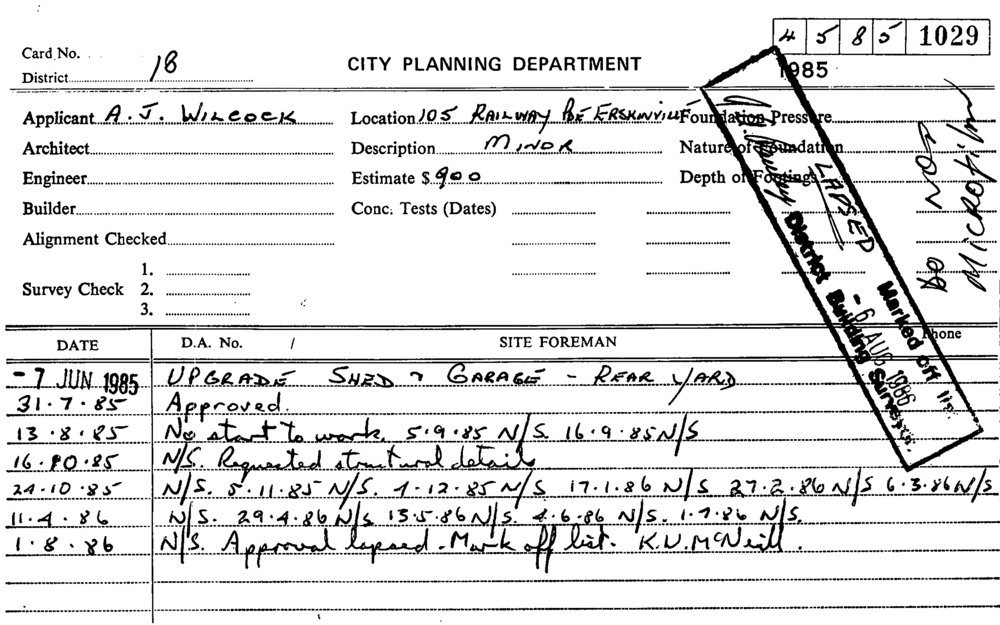 4 5 8 5 1029
Card No.
District 18
CITY PLANNING DEPARTMENT
1985
Applicant A. J. WILCOCK
Location 105 RAILWAY PDE ERSKINVILLE
Foundation Pressure
Architect
Description MINOR
Nature of Foundation
Engineer
Estimate $ 900
Depth of Footings
Builder
Conc. Tests (Dates)
Alignment Checked
Survey Check
1.
2.
3.
LAPSED
Marked off list
- 6 AUG 1986
District Building Surveyor
DO NOT
MICROFILM
DATE
D.A. No. /
SITE FOREMAN
Phone
- 7 JUN 1985 UPGRADE SHED & GARAGE - REAR YARD
31.7.85 Approved.
13.8.85 No start to work. 5.9.85 N/S. 16.9.85 N/S
16.10.85 N/S. Requested structural details
24.10.85 N/S. 5.11.85 N/S. 4.12.85 N/S 17.1.86 N/S 27.2.86 N/S 6.3.86 N/S.
11.4.86 N/S. 29.4.86 N/S 13.5.86 N/S. 4.6.86 N/S. 1.7.86 N/S.
1.8.86 N/S. Approval lapsed. Mark off list. K.V. McNeill.